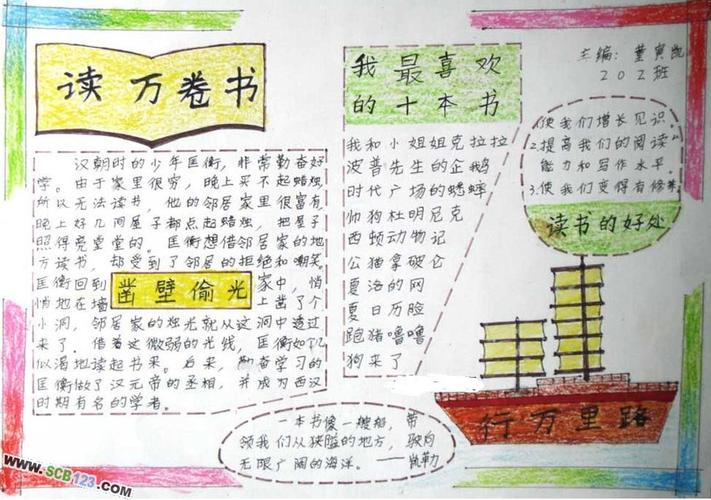 读万卷书
汉朝时的少年匡衡，非常勤奋好
学。由于家里很穷，晚上买不起蜡烛
所以无法读书，他的邻居家里很富有
晚上好几间屋子都点起蜡烛，把屋子
照得亮堂堂的。匡衡想借邻居家的地
方读书，却受到了邻居的拒绝和嘲笑。
匡衡回到
凿壁偷光
家中，悄
悄地在墙
上凿了个
小洞，邻居家的烛光就从这洞中透过
来了。借着这微弱的光线，匡衡如饥
似渴地读起书来。后来，勤奋学习的
匡衡做了汉元帝的丞相，并成为西汉
时期有名的学者。
我最喜欢
的十本书
我和小姐姐克拉拉
波普先生的企鹅
时代广场的蟋蟀
帅狗杜明尼克
西顿动物记
公猫拿破仑
夏洛的网
夏日历险
跑猪噜噜
狗来了
主编：董寅凯
202班
1.使我们增长见识。
2.提高我们的阅读
能力和写作水平。
3.使我们变得有修养。
读书的好处
行万里路
一本书像一艘船，带
领我们从狭隘的地方，驶向
无限广阔的海洋。——凯勒
www.SCB123.com